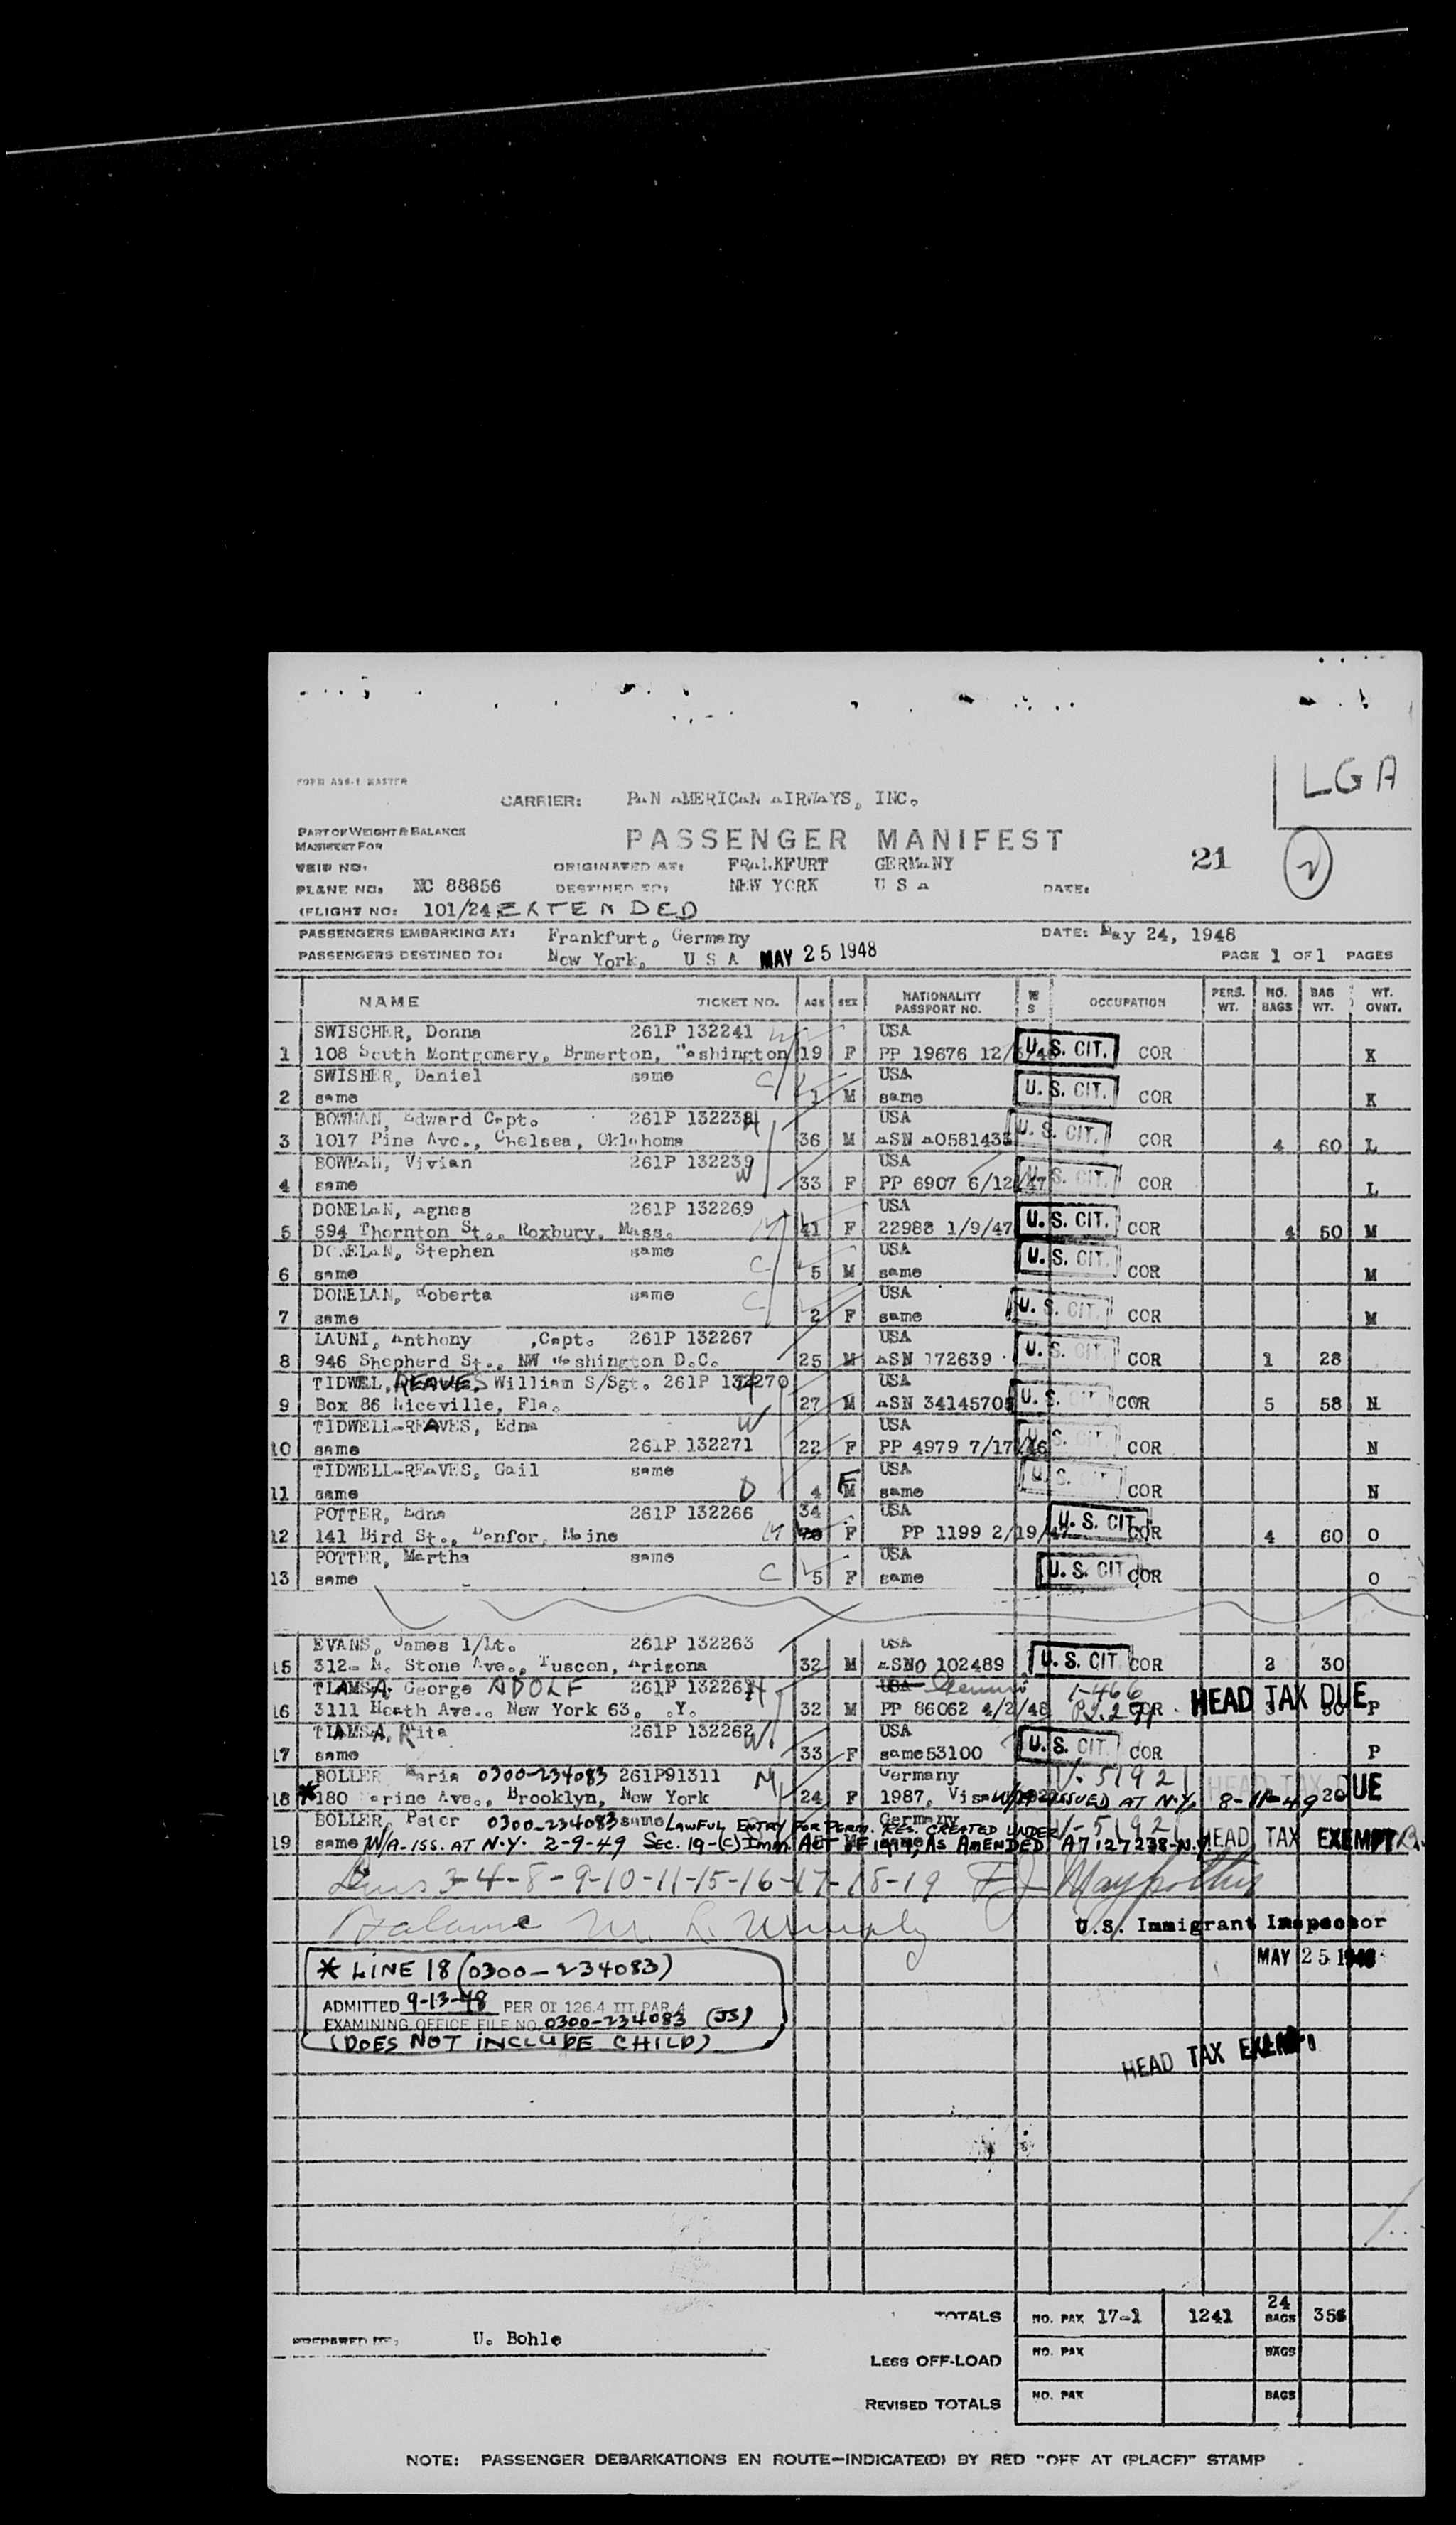 FORM ASS-1 MASTER
LGA
CARRIER: PAN AMERICAN AIRWAYS, INC.
PART OF WEIGHT & BALANCE
MANIFEST FOR
PASSENGER MANIFEST
21
2
TRIP NO:
ORIGINATED AT: FRANKFURT GERMANY
PLANE NO: NC 88856
DESTINED TO: NEW YORK U S A
DATE:
(FLIGHT NO: 101/24 EXTENDED
PASSENGERS EMBARKING AT: Frankfurt, Germany
DATE: May 24, 1948
PASSENGERS DESTINED TO: New York, U S A MAY 25 1948
PAGE 1 OF 1 PAGES
NAME TICKET NO. AGE SEX NATIONALITY PASSPORT NO. M S OCCUPATION PERS. WT. NO. BAGS BAG WT. WT. OVNT.
SWISCHER, Donna 261P 132241 USA
1 108 South Montgomery, Brmerton, Washington 19 F PP 19676 12/ U. S. CIT. COR K
SWISHER, Daniel same C USA
2 same 1 M same U. S. CIT. COR K
BOWMAN, Edward Capt. 261P 132238 H USA
3 1017 Pine Ave., Chelsea, Oklahoma 36 M ASN AO581433 U. S. CIT. COR 4 60 L
BOWMAN, Vivian 261P 132239 W USA
4 same 33 F PP 6907 6/12/47 U. S. CIT. COR L
DONELAN, Agnes 261P 132269 M USA
5 594 Thornton St., Roxbury, Mass. 41 F 22988 1/9/47 U. S. CIT. COR 4 50 M
DONELAN, Stephen same C USA
6 same 5 M same U. S. CIT. COR M
DONELAN, Roberta same C USA
7 same 2 F same U. S. CIT. COR M
LAUNI, Anthony ,Capt. 261P 132267 USA
8 946 Shepherd St., NW Washington D.C. 25 M ASN 172639 U. S. CIT. COR 1 28
TIDWEL, REAVES William S/Sgt. 261P 132270 H USA
9 Box 86 Niceville, Fla. 27 M ASN 34145705 U. S. COR 5 58 N
TIDWELL-REAVES, Edna W USA
10 same 261P 132271 22 F PP 4979 7/17/46 U. S. CIT. COR N
TIDWELL-REAVES, Gail same USA
11 same D 4 M F same U. S. CIT. COR N
POTTER, Edna 261P 132266 34 USA
12 141 Bird St., Danfor, Maine M F PP 1199 2/19/ U. S. CIT. COR 4 60 O
POTTER, Martha same USA
13 same C 5 F same U. S. CIT COR O
EVANS, James 1/Lt. 261P 132263 USA
15 312- N. Stone Ave., Tuscon, Arizona 32 M ASNO 102489 U. S. CIT. COR 2 30
TLAMSA, George ADOLF 261P 13226 H USA German 1-466
16 3111 Heath Ave., New York 63, .Y. 32 M PP 86062 4/2/48 COR HEAD TAX DUE P
TLAMSA, Rita 261P 132262 W USA
17 same 33 F same 53100 U. S. CIT. COR P
BOLLER Maria 0300-234083 261P91311 M Germany V. 51921 HEAD TAX DUE
*18 180 Brooklyn, New York 24 F 1987, Visa ISSUED AT N.Y. 8-11-49 20
BOLLER, Peter 0300-234083 same LAWFUL ENTRY FOR PERM. RES. CREATED UNDER Germany V-51921
19 same W/A-ISS. AT N.Y. 2-9-49 SEC. 19-(C) IMM. ACT OF 1917, AS AMENDED A7127238-N.Y. HEAD TAX EXEMPT
3-4-8-9-10-11-15-16-17-18-19
U.S. Immigrant Inspector
MAY 25 1948
* LINE 18 (0300-234083)
ADMITTED 9-13-48 PER OI 126.4 III PAR 4
EXAMINING OFFICE FILE NO. 0300-234083 (JS)
(DOES NOT INCLUDE CHILD)
HEAD TAX EXEMPT
TOTALS NO. PAX 17-1 1241 24 BAGS 356
PREPARED BY: U. Bohle
LESS OFF-LOAD NO. PAX BAGS
REVISED TOTALS NO. PAX BAGS
NOTE: PASSENGER DEBARKATIONS EN ROUTE—INDICATE(D) BY RED "OFF AT (PLACE)" STAMP